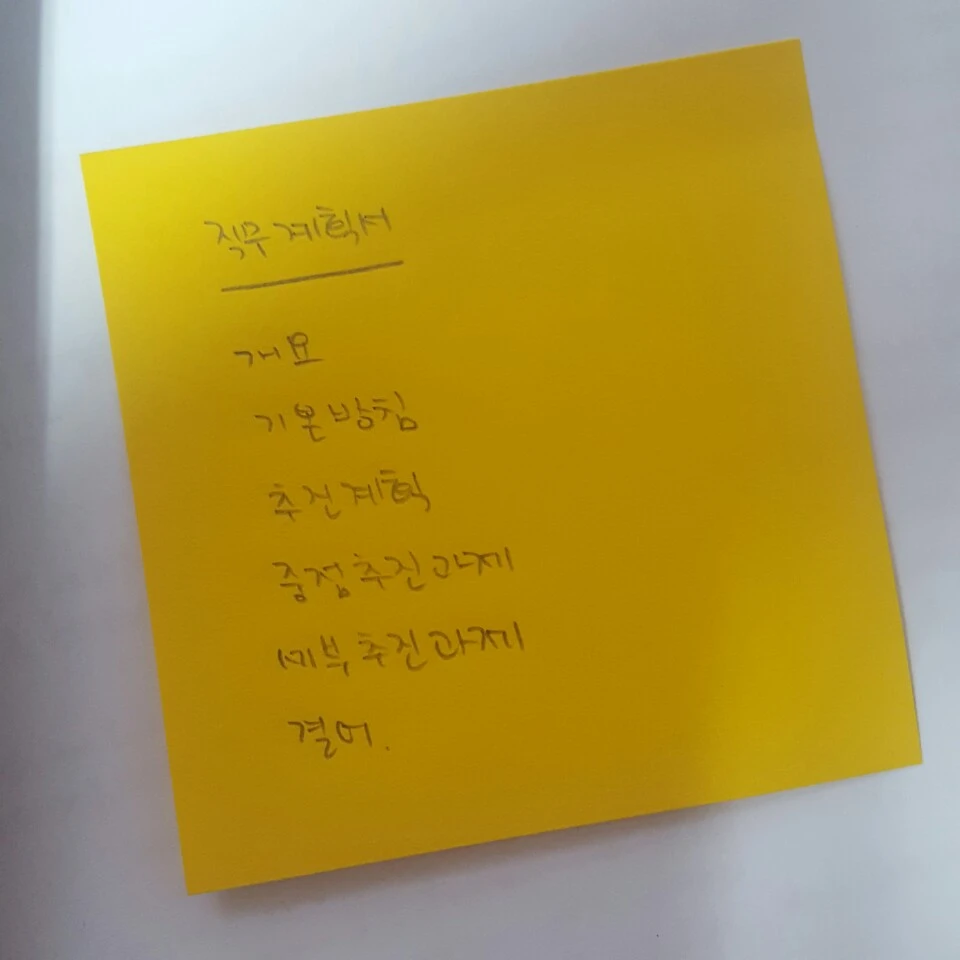 직무계획서
개요
기본방침
추진계획
중점추진과제
세부추진과제
결어.